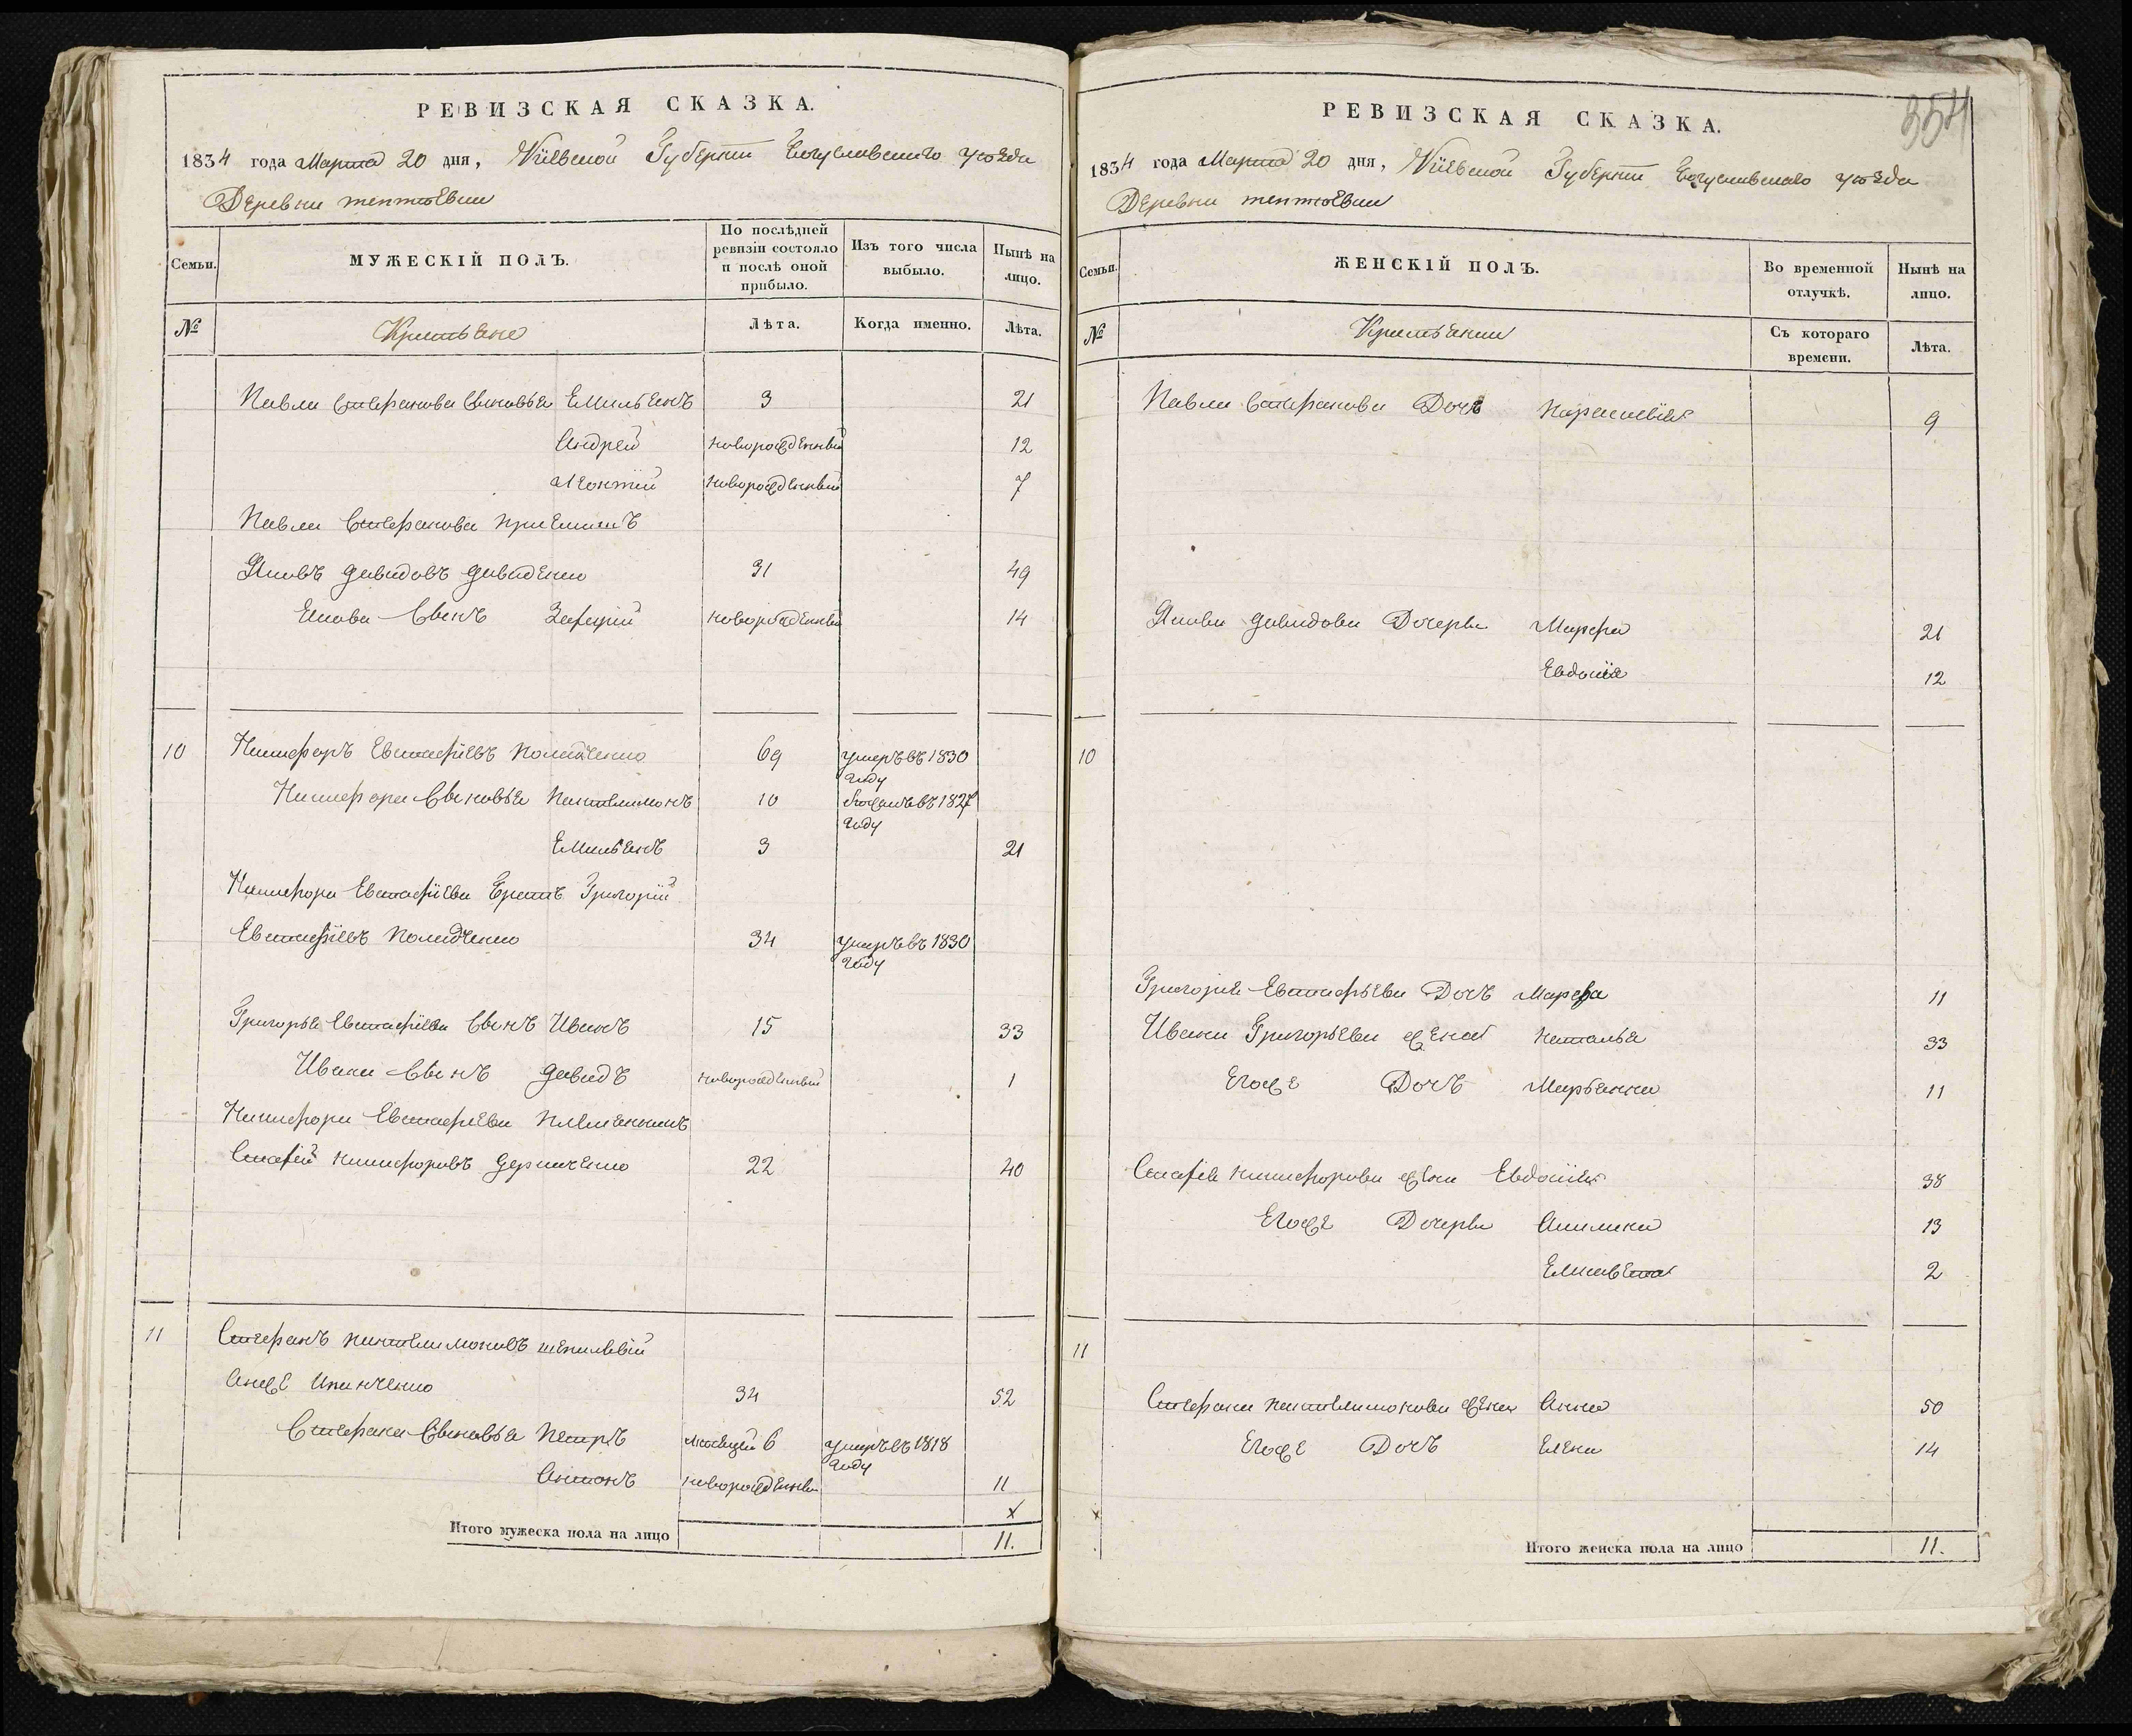 РЕВИЗСКАЯ СКАЗКА.
1834 года Марта 20 дня, Кіевской Губерніи Богуславского уѣзда
Деревни тептіевки
Семьи.
МУЖЕСКІЙ ПОЛЪ.
По послѣдней ревизіи состояло и послѣ оной прибыло.
Изъ того числа выбыло.
Нынѣ на лицо.
№
Крестьяне
Лѣта.
Когда именно.
Лѣта.
Павла Стефанова Сыновья Емильянъ 3 21
Андрей новорожденный 12
Леонтій новорожденный 7
Павла Стефанова приемишъ
Яковъ Давидовъ Давиденко 31 49
Якова Сынъ Захарій новорожденный 14
10 Никифоръ Евстафіевъ 69 умеръ въ 1830 году
Никифора Сыновья Пантелимонъ 10 въ 1827 году
Емильянъ 3 21
Никифора Евстафіева Братъ Григорій
Евстафіевъ 34 умеръ въ 1830 году
Григорья Евстафіева Сынъ Иванъ 15 33
Ивана Сынъ Давидъ новорожденный 1
Никифора Евстафіева племянникъ
Никифоровъ 22 40
11 Стефанъ Пантелимоновъ
онже 34 52
Стефана Сыновья Петръ 6 умеръ въ 1818 году
Антонъ новорожденны 11
х
Итого мужеска пола на лицо 11.
354
РЕВИЗСКАЯ СКАЗКА.
1834 года Марта 20 дня, Кіевской Губерніи Богуславскаго уѣзда
Деревни тептіевки
Семьи.
ЖЕНСКІЙ ПОЛЪ.
Во временной отлучкѣ.
Нынѣ на лицо.
№
Крестьянки
Съ котораго времени.
Лѣта.
Павла Стефанова Дочь Параскевія 9
Якова Давидова Дочеры Марфа 21
Евдокія 12
10
Григорія Евстафьева Дочъ Марфа 11
Ивана Григорьева жена Наталья 33
Егоже Дочъ Марьянна 11
Никифорова жена Евдокія 38
Егоже Дочеры Акилина 13
Елисавета 2
11
Стефана Пантелимонова жена Анна 50
Егоже Дочъ Елена 14
х
Итого женска пола на лицо 11.